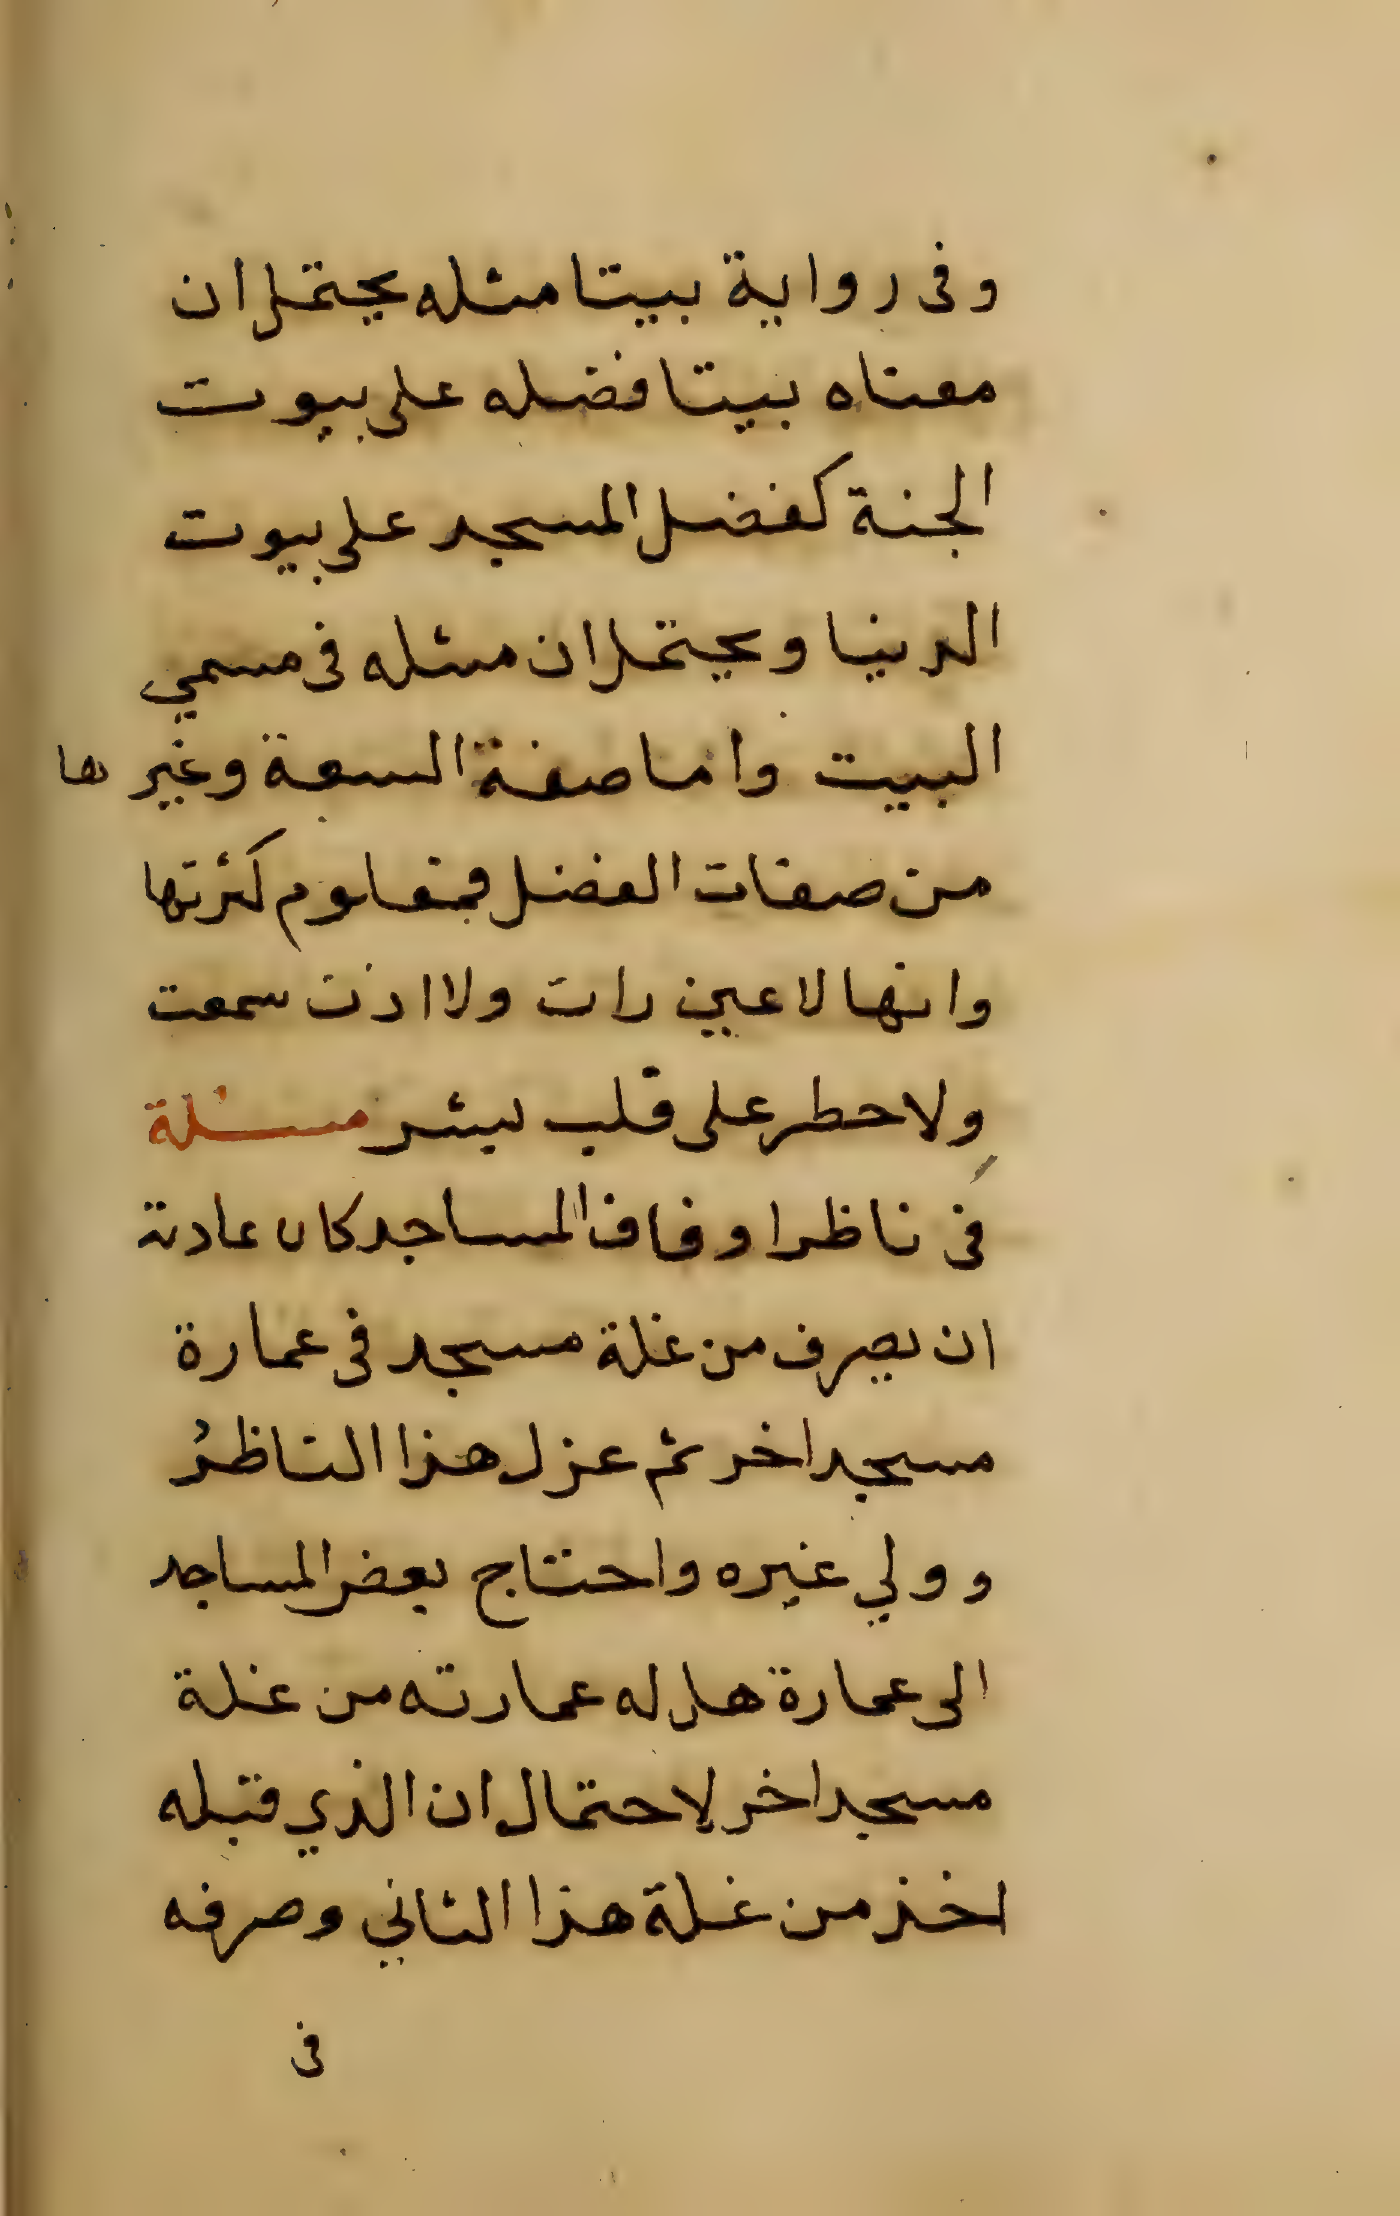 وفى رواية بيتا مثله يحتمل ان
معناه بيتا فضله على بيوت
الجنة كفضل المسجد على بيوت
الدنيا ويحتمل ان مثله فى مسمي
البيت واما صفة السعة وغيرها
من صفات الفضل فمعلوم كثرتها
وانها لا عين رات ولا اذن سمعت
ولا خطر على قلب بشر مسئلة
فى ناظر اوقاف المساجد كان عادته
ان يصرف من غلة مسجد فى عمارة
مسجد اخر ثم عزل هذا الناظرُ
وولي غيره واحتاج بعض المساجد
الى عمارة هل له عمارته من غلة
مسجد اخر لاحتمال ان الذي قبله
اخذ من غلة هذا الثاني وصرفه
فى